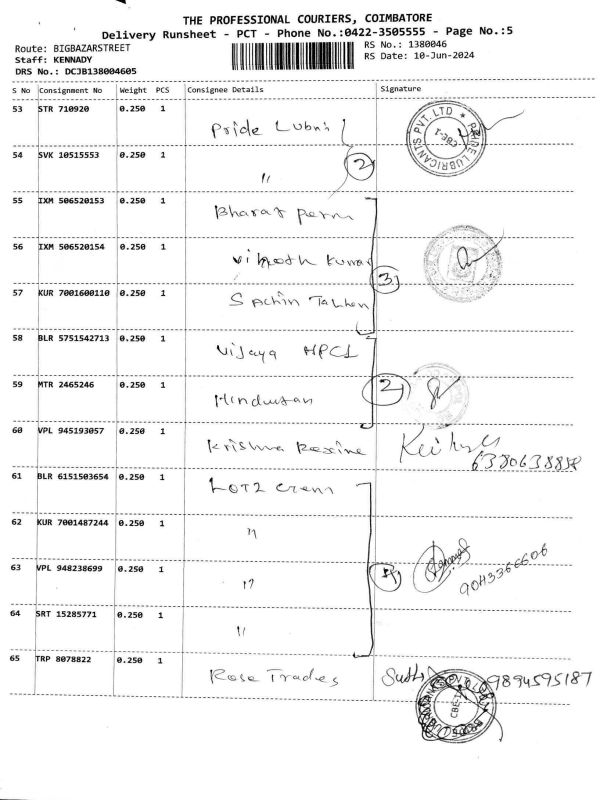 THE PROFESSIONAL COURIERS, COIMBATORE
Delivery Runsheet - PCT - Phone No.:0422-3505555 - Page No.:5
Route: BIGBAZARSTREET
RS No.: 1380046
Staff: KENNADY
RS Date: 10-Jun-2024
DRS No.: DCJB138004605
S No Consignment No Weight PCS Consignee Details Signature
53 STR 710920 0.250 1 Pride Lubri
PRIDE LUBRICANTS PVT. LTD ★ CBE-1
54 SVK 10515553 0.250 1 "
2
55 IXM 506520153 0.250 1 Bharat
56 IXM 506520154 0.250 1 Kumar
3
57 KUR 7001600110 0.250 1 Sachin
58 BLR 5751542713 0.250 1 Vijaya HPCL
59 MTR 2465246 0.250 1 Hindustan
2
60 VPL 945193057 0.250 1 Krishna Rexine
61 BLR 6151503654 0.250 1
62 KUR 7001487244 0.250 1 "
63 VPL 948238699 0.250 1 "
4
9043366606
64 SRT 15285771 0.250 1 "
65 TRP 8078822 0.250 1 Rose Trades
9894595187
CBE-1